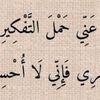 عَنِّي حَمْلَ التَّفْكِيرِ
رِي فَإِنِّي لَا أُحْسِ